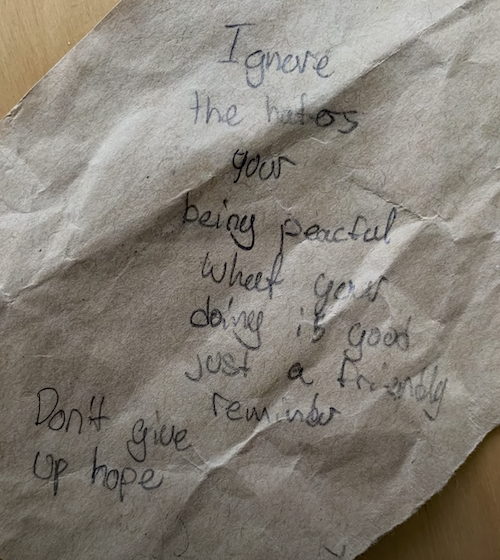 Ignore
the hatos
your
being peacful
what your
doing is good
just a friendly
reminder
Don't give
up hope